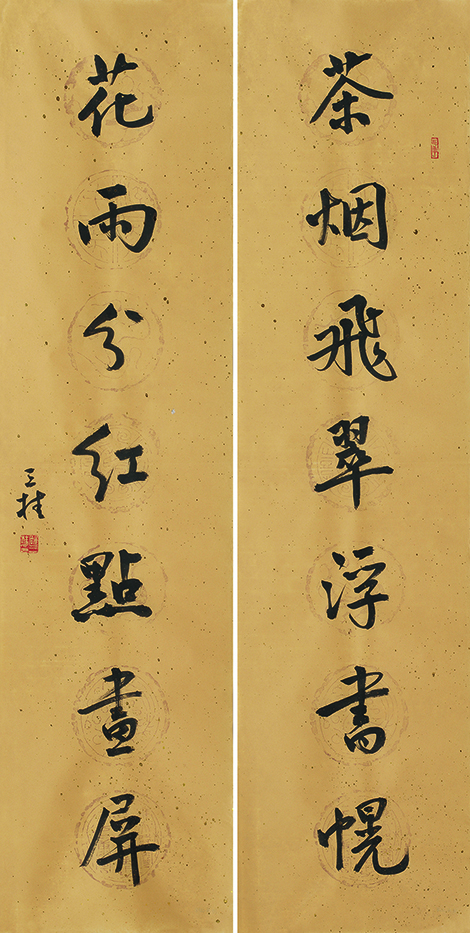 茶烟飛翠浮書幌
花雨分红點畫屏
三桂